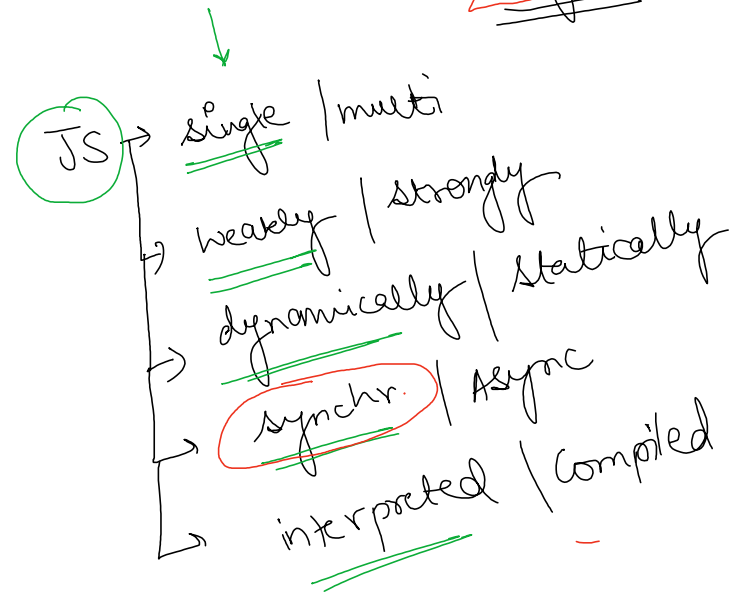 single / multi
JS
weakly / strongly
dynamically / statically
synchr. / Async
interpreted / Compiled